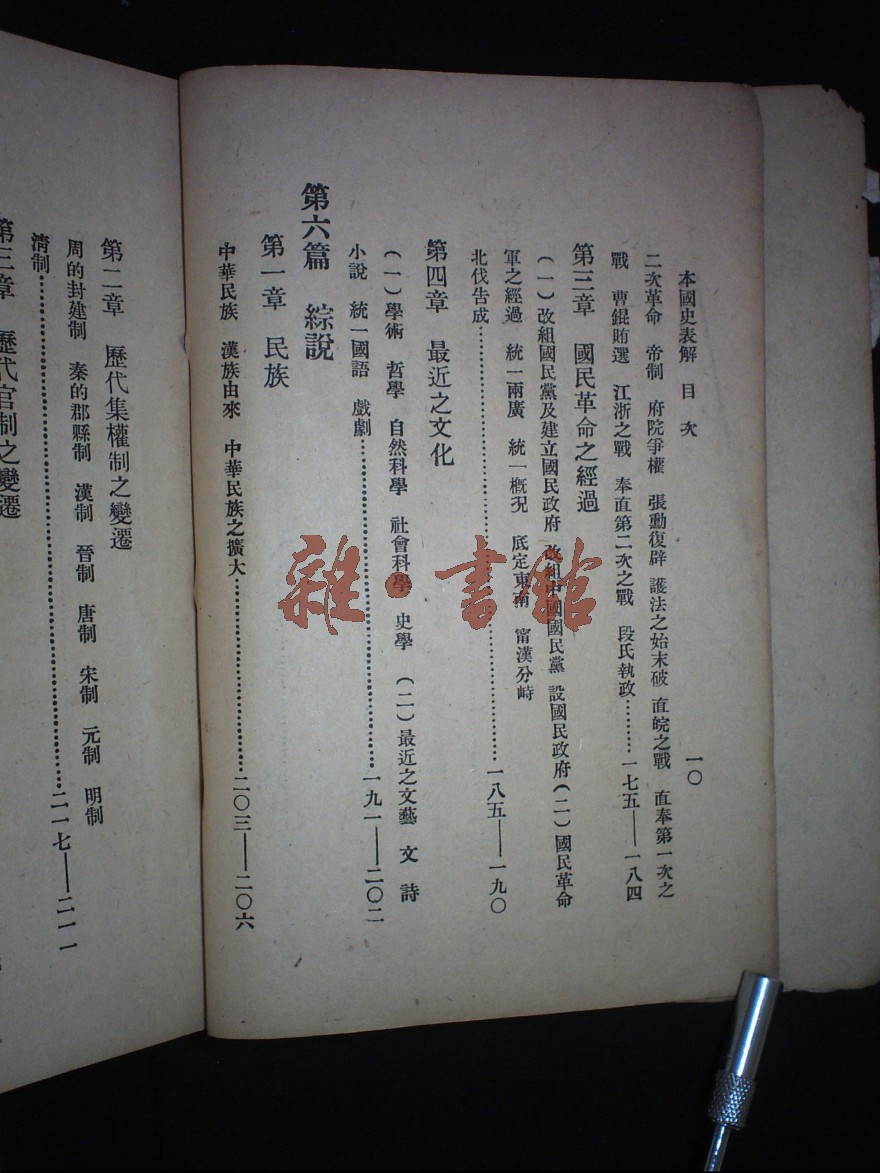 本國史表解 目次 一〇
二次革命 帝制 府院爭權 張勳復辟 護法之始末破 直皖之戰 直奉第一次之
戰 曹錕賄選 江浙之戰 奉直第二次之戰 段氏執政…………一七五——一八四
第三章 國民革命之經過
(一)改組國民黨及建立國民政府 改組中國國民黨 設國民政府(二)國民革命
軍之經過 統一兩廣 統一概況 底定東南 甯漢分峙
北伐告成…………一八五——一九〇
第四章 最近之文化
(一)學術 哲學 自然科學 社會科學 史學 (二)最近之文藝 文 詩
小說 統一國語 戲劇…………一九一——二〇二
第六篇 綜說
第一章 民族
中華民族 漢族由來 中華民族之擴大…………二〇三——二〇六
第二章 歷代集權制之變遷
周的封建制 秦的郡縣制 漢制 晉制 唐制 宋制 元制 明制
清制…………二一七——二一一
第三章 歷代官制之變遷
雜·書館